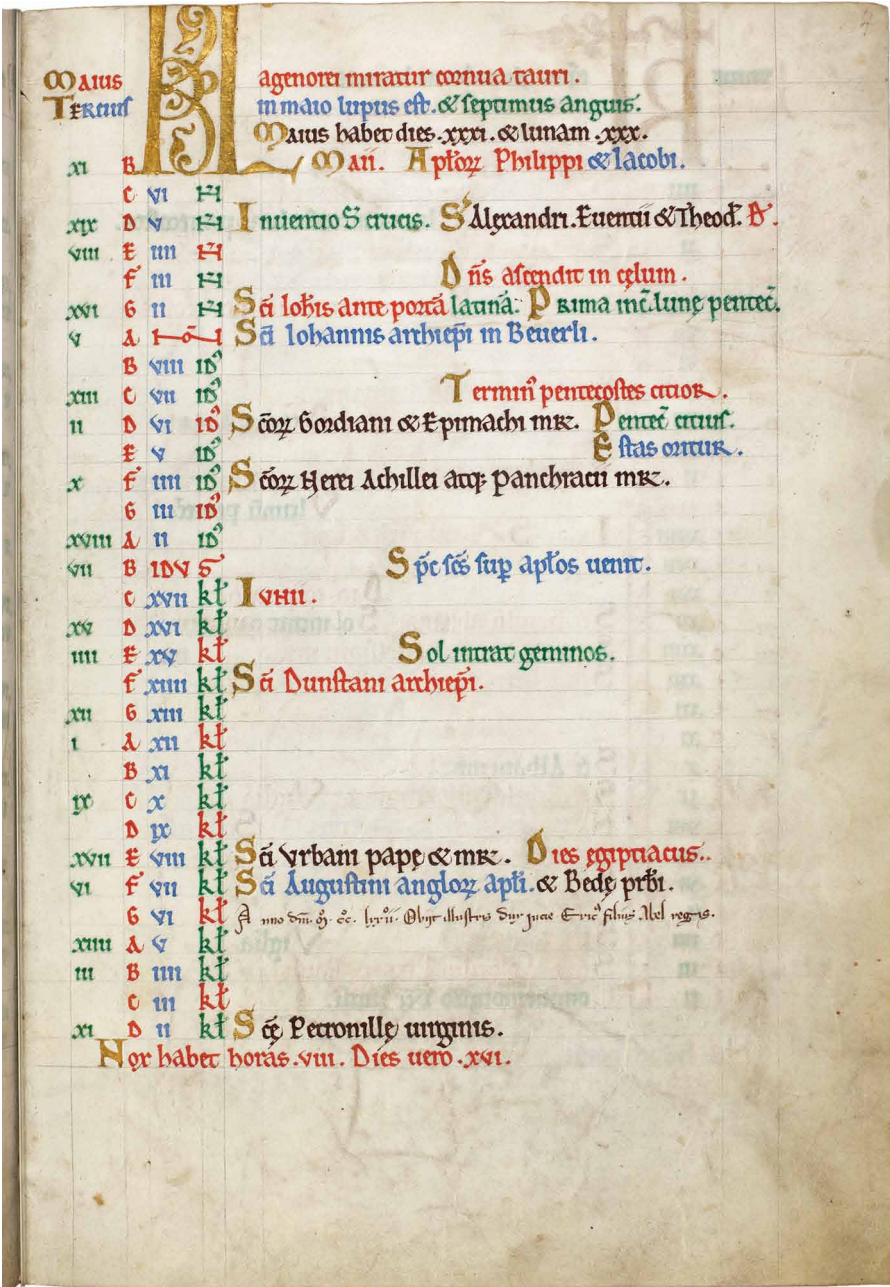 Maius KL agenorei miratur cornua tauri .
Tertius in maio lupus est. & septimus anguis.
Maius habet dies .xxxi. & lunam .xxx.
xi B Maii. Apl'oꝝ Philippi & Iacobi.
C vi N
xix D v N Inuentio S crucis. S Alexandri. Euentii & Theod'.
viii E iiii N
F iii N Dñs ascendit in cęlum .
xvi G ii N Sc̄i Ioh̄is ante portā latinā. Prima inc̄. lunę pentec̄.
v A Nō Sc̄i Iohannis archiep̄i in Beuerli .
B viii id'
xiii C vii id' Termin' pentecostes citior .
ii D vi id' Sc̄oꝝ Gordiani & Epimachi mr. Pentec̄ citius.
E v id' Estas oritur .
x F iiii id' Sc̄oꝝ Nerei Achillei atq; Panchracii mr .
G iii id'
xviii A ii id'
vii B IDVS Sp̄c sc̄s sup apl'os uenit .
C xvii kł Iunii .
xv D xvi kł
iiii E xv kł Sol intrat geminos .
F xiiii kł Sc̄i Dunstani archiep̄i .
xii G xiii kł
i A xii kł
B xi kł
ix C x kł
D ix kł
xvii E viii kł Sc̄i Vrbani papę & mr . Dies ęgiptiacus .
vi F vii kł Sc̄i Augustini angloꝝ apl'i . & Bedę prb̄i .
G vi kł Anno dn̄i. Mº. ccº. lxxºii. Obijt illustris dux iucie Eric' filius Abel regis.
xiiii A v kł
iii B iiii kł
C iii kł
xi D ii kł Sc̄ę Petronillę uirginis .
Nox habet horas .viii. Dies uero .xvi.